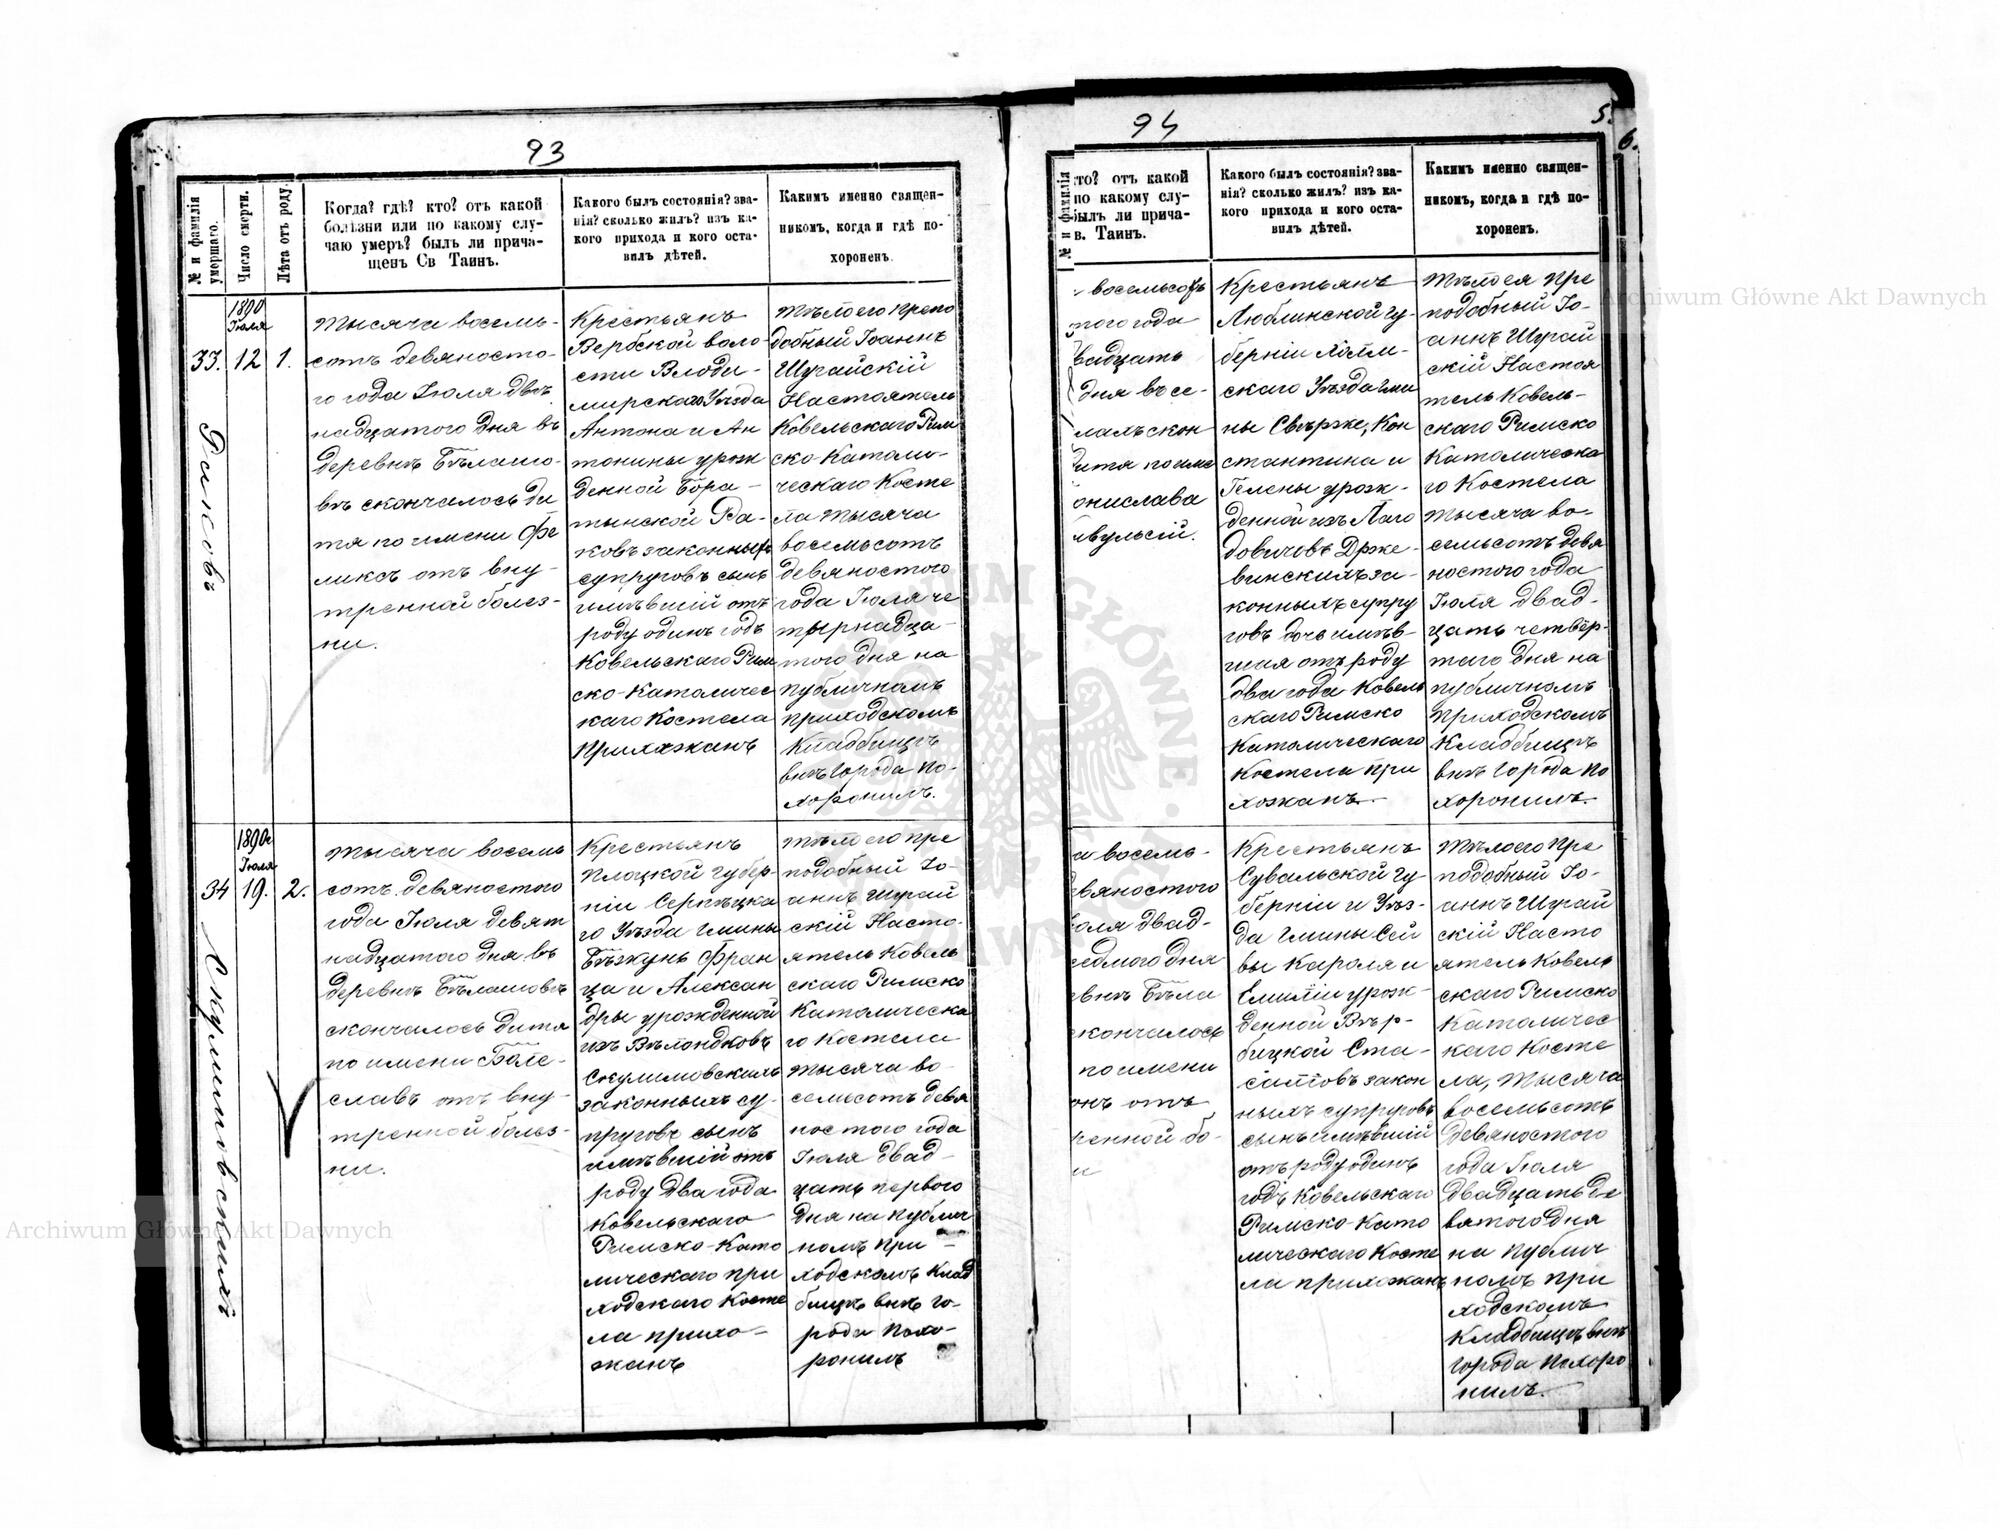 93
№ и фамилія умершаго.
Число смерти.
Лѣта отъ роду
Когда? гдѣ? кто? отъ какой
болѣзни или по какому слу-
чаю умеръ? былъ ли прича-
щенъ Св Таинъ.
Какого былъ состоянія? зва-
нія? сколько жилъ? изъ ка-
кого прихода и кого оста-
вилъ дѣтей.
Какимъ именно священ-
никомъ, когда и гдѣ по-
хороненъ.
1890
Іюля
33. 12 1.
Раковъ
Тысяча восемь-
сотъ девяносто-
го года Іюля двѣ
надцатого дня въ
деревнѣ Бѣлашо-
вѣ скончалось ди
тя по имени Фе
ликсъ отъ вну-
тренной болез-
ни.
Крестьянъ
Вербской воло-
сти Влоди-
мирскаго Уѣзда
Антона и Ан
тонины урож
денной Бора-
тынской Ра-
ковъ законныхъ
супруговъ сынъ
имѣвшій отъ
роду одинъ годъ
Ковельскаго Рим
ско-Католичес
каго Костела
Прихожанъ
Тѣло его препо
добный Іоаннъ
Шугайскій
Настоятель
Ковельскаго Рим
ско-Католи-
ческаго Косте
ла тысяча
восемьсотъ
девяностого
года Іюля че
тырнадца-
того дня на
публичномъ
приходскомъ
Кладбищѣ
внѣ города по-
хоронилъ.
1890г
Іюля
34 19. 2.
Скулимовскихъ
Тысяча восемь
сотъ девяностого
года Іюля девят
надцатого дня въ
деревнѣ Бѣлашовѣ
скончалось дитя
по имени Боле-
славъ отъ вну-
тренной болез-
ни.
Крестьянъ
Плоцкой губер-
ніи Серпѣцка
го Уѣзда гмины
Бѣжунь Фран
ца и Алексан
дры урожденной
изъ Вѣлондковъ
Скулимовскихъ
законныхъ су-
пруговъ сынъ
имѣвшій отъ
роду два года
Ковельскаго
Римско-Като
лическаго при
ходскаго Косте
ла прихо-
жанъ
Тѣло его пре
подобный Іо-
аннъ Шугай
скій Насто-
ятель Ковель
скаго Римско
Католическа
го Костела
тысяча во-
семьсотъ девя
ностого года
Іюля двад-
цать первого
дня на публич
номъ при-
ходскомъ клад
бищѣ внѣ го-
рода похо-
ронилъ
94
5.
6.
№ и фамилія
то? отъ какой
по какому слу-
былъ ли прича-
в. Таинъ.
Какого былъ состоянія? зва-
нія? сколько жилъ? изъ ка-
кого прихода и кого оста-
вилъ дѣтей.
Какимъ именно священ-
никомъ, когда и гдѣ по-
хороненъ.
восемьсотъ
того года
вадцать
дня въ се-
лахъ скон
итя по име
онислава
вульсій.
Крестьянъ
Люблинской гу-
берніи Холм-
скаго Уѣзда гми
ны Свѣрже, Кон
стантина и
Гелены урож-
денной изъ Лаго
довичовъ Држе-
винскихъ за-
конныхъ супру
говъ дочь имѣв-
шая отъ роду
два года Ковель
скаго Римско
Католическаго
Костела при
хожанъ.
Тѣло ея пре
подобный Іо-
аннъ Шугай
скій Настоя
тель Ковель-
скаго Римско
Католическа
го Костела
тысяча во-
семьсотъ девя
ностого года
Іюля двад-
цать четвер-
таго дня на
публичномъ
приходскомъ
Кладбищѣ
внѣ города по
хоронилъ.
а восемь-
вяностого
юля двад-
седмого дня
внѣ Бѣла
скончалось
по имени
онъ отъ
ренной бо-
и
Крестьянъ
Сувальской гу-
берніи и Уѣз-
да гмины Сей
вы Кароля и
Емиліи урож-
денной Вѣр-
бицкой Ста-
закон
ныхъ супруговъ
сынъ имѣвшій
отъ роду одинъ
годъ Ковельскаго
Римско-Като
лическаго Косте
ла прихожанъ
Тѣло его пре
подобный Іо-
аннъ Шугай
скій Насто
ятель Ковель
скаго Римско
Католичес
каго Косте
ла, тысяча
восемьсотъ
девяностого
года Іюля
двадцать де
вятого дня
на публич
номъ при
ходскомъ
Кладбищѣ внѣ
города похоро
нилъ.
Archiwum Główne Akt Dawnych
Archiwum Główne Akt Dawnych